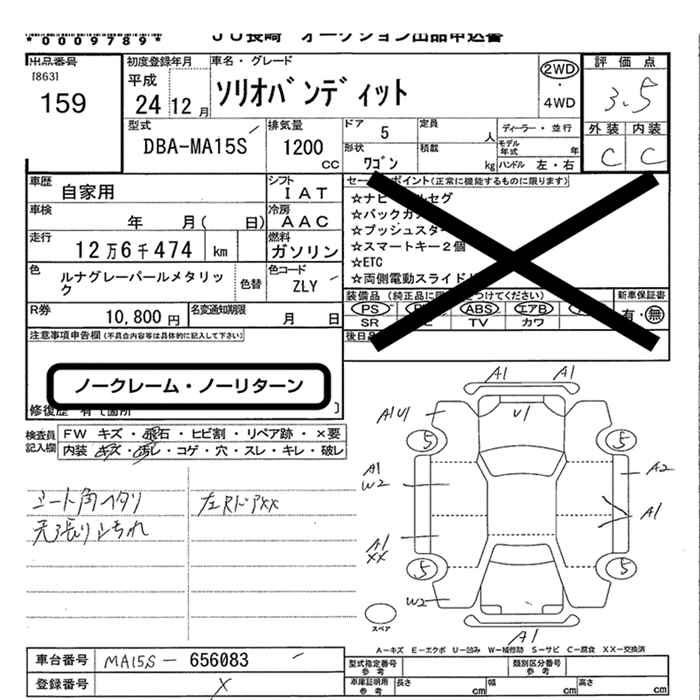 *0009789* JU長崎 オークション出品申込書
出品番号
[863]
159
初度登録年月
平成
24 12 月
車名・グレード
ソリオバンディット
2WD
・
4WD
評価点
3.5
外装 内装
C C
型式
DBA-MA15S
排気量
1200
cc
ドア 5
定員 人
形状
ワゴン
積載 kg
ディーラー・並行
モデル年式 年
ハンドル 左・右
車歴 自家用
シフト
IAT
車検 年 月( 日)
冷房
AAC
走行 12万6千474 km
燃料
ガソリン
色 ルナグレーパールメタリック
色替
色コード
ZLY
R券 10,800 円
名変通知期限
月 日
セールスポイント(正常に機能するものに限ります)
☆ナビ
☆バックカ
☆プッシュスター
☆スマートキー2個
☆ETC
☆両側電動スライド
装備品
PS ABS エアB
SR TV カワ
新車保証書
有・無
後日品
注意事項申告欄(不具合内容等は具体的に記入して下さい)
ノークレーム・ノーリターン
修復歴 有 て箇所
検査員記入欄
FW キズ・飛石・ヒビ割・リペア跡・×要
内装 キズ・汚レ・コゲ・穴・スレ・キレ・破レ
シート角ヘタリ
天張り汚れ
左RドアXX
A1
A1
U1
A1U1
5
5
A1
W2
A2
A1
A1
XX
5
5
W2
A1
スペア
A-キズ E-エクボ U-凹み W-補修跡 S-サビ C-腐食 XX-交換済
車台番号 MA15S- 656083
登録番号 X
型式指定番号
参考
類別区分番号
参考
車庫証明用
参考
長さ cm
幅 cm
高さ cm